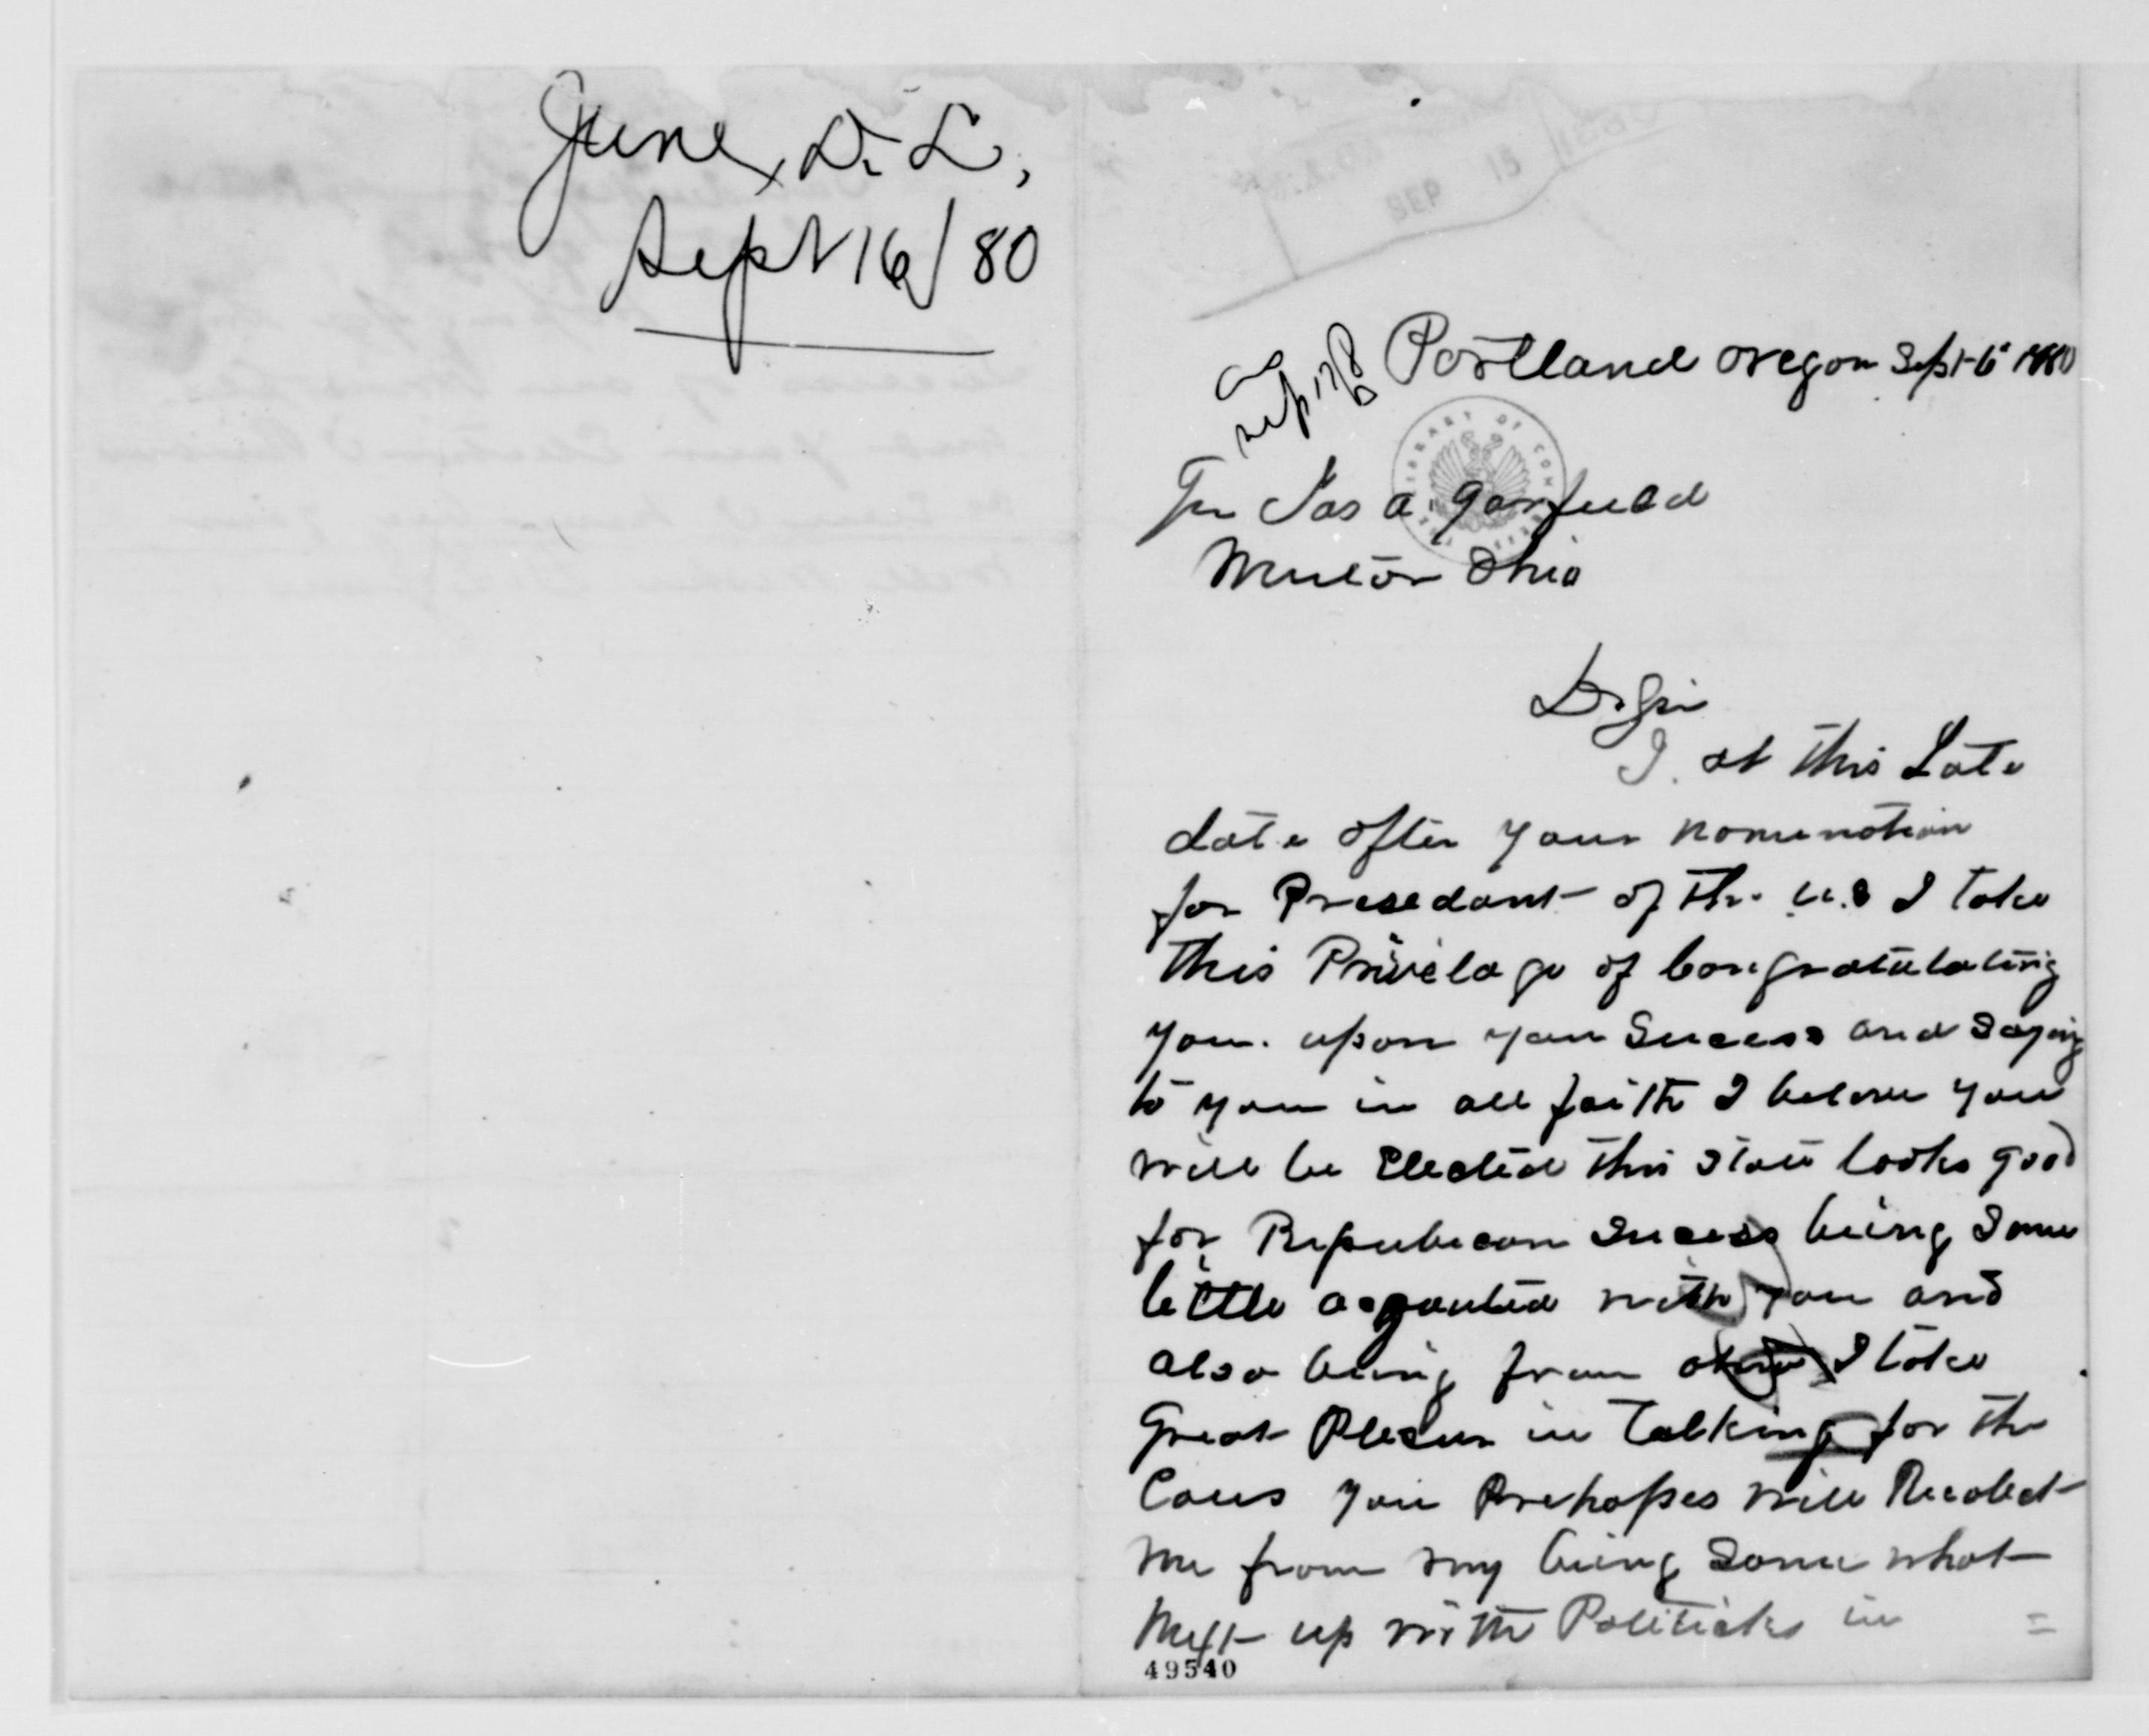 June, D. L,
Sept 16/80
SEP 15 1880
Portland Oregon Sept 6" 1880
Sep 17/80
Jas a. Garfield
Mentor Ohio
LIBRARY OF CON
Dr Sir
I. at this Late
date after your nomination
for Presedant of the U.S I take
this Privelage of Congratulating
you. upon your Sucess and Saying
to you in all faith I beleve you
will be Elected this State looks good
for Republican Sucess being Some
little aqquanted with you and
also being from ohio I take
Great Plesur in Talking for the
Caus you Prehapses will Recolect
me from my being Some what
Mixt up with Politicks in =
49540